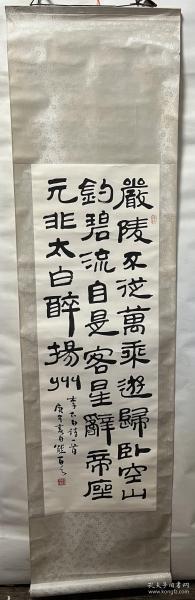 嚴陵不從萬乘遊歸卧空山
釣碧流自是客星辭帝座
元非太白醉揚州
李太白詩一首
孔夫子旧书网